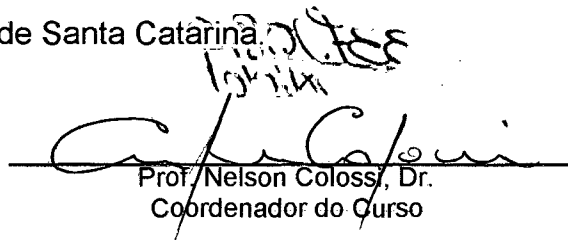 de Santa Catarina.
Prof. Nelson Colossi, Dr.
Coordenador do Curso